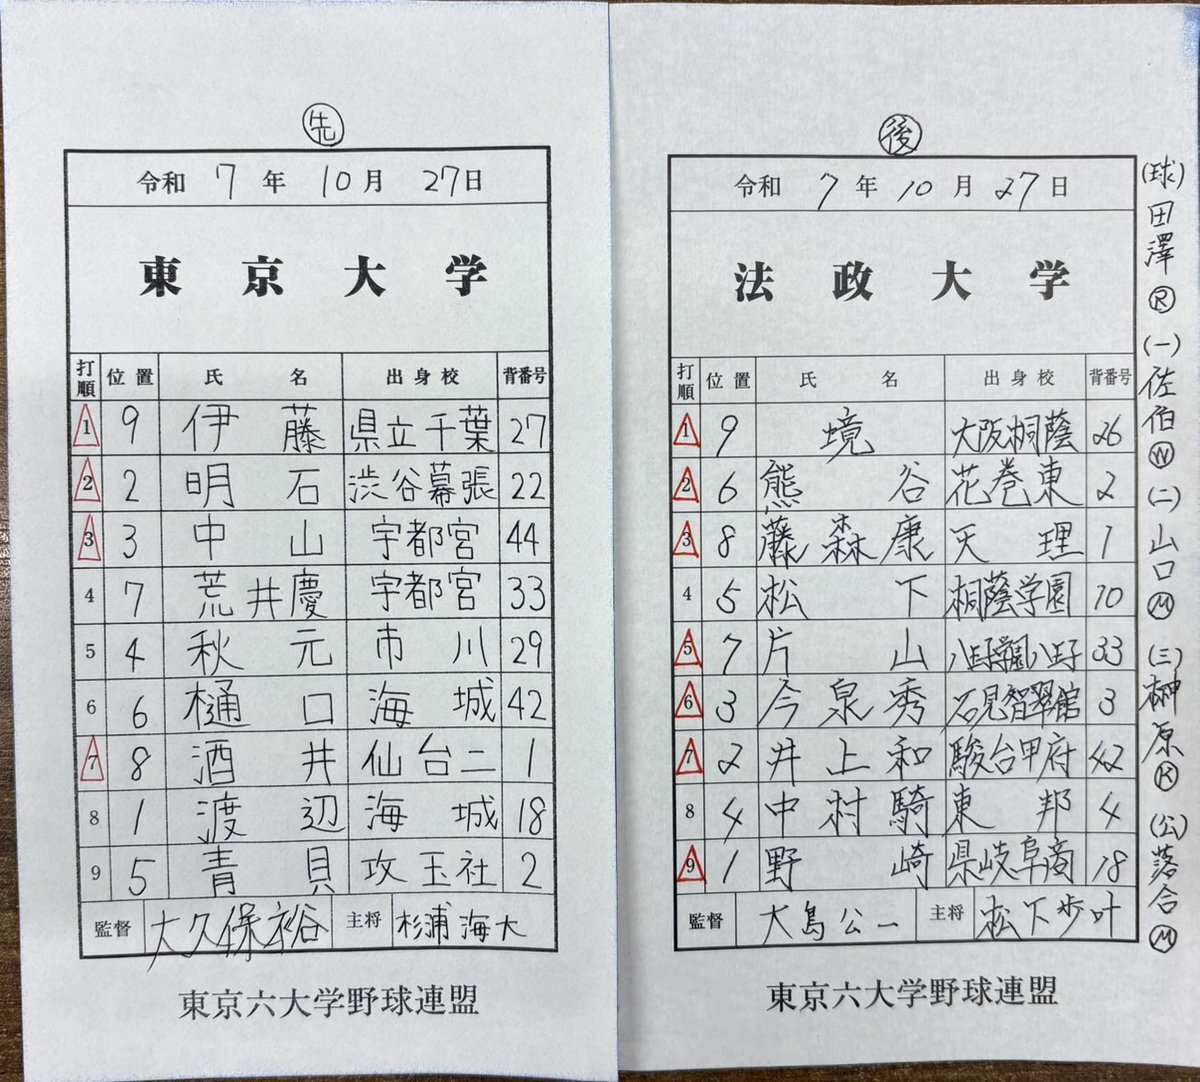 先
令和 7 年 10 月 27 日
東京大学
打順 位置 氏名 出身校 背番号
1 9 伊藤 県立千葉 27
2 2 明石 渋谷幕張 22
3 3 中山 宇都宮 44
4 7 荒井慶 宇都宮 33
5 4 秋元 市川 29
6 6 樋口 海城 42
7 8 酒井 仙台二 1
8 1 渡辺 海城 18
9 5 青貝 攻玉社 2
監督 大久保裕 主将 杉浦海大
東京六大学野球連盟
後
令和 7 年 10 月 27 日
法政大学
打順 位置 氏名 出身校 背番号
1 9 境 大阪桐蔭 26
2 6 熊谷 花巻東 2
3 8 藤森康 天理 1
4 5 松下 桐蔭学園 10
5 7 片山 八王子学園八王子 33
6 3 今泉秀 石見智翠館 3
7 2 井上和 駿台甲府 42
8 4 中村騎 東邦 4
9 1 野崎 県岐阜商 18
監督 大島公一 主将 松下歩叶
東京六大学野球連盟
(球)田澤Ⓡ (一)佐伯Ⓦ (二)山口Ⓜ (三)榊原Ⓚ (公)落合Ⓜ